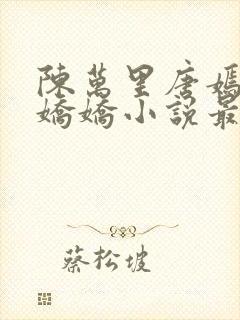 陳萬里唐嫣
嬌嬌小說最
蔡松坡